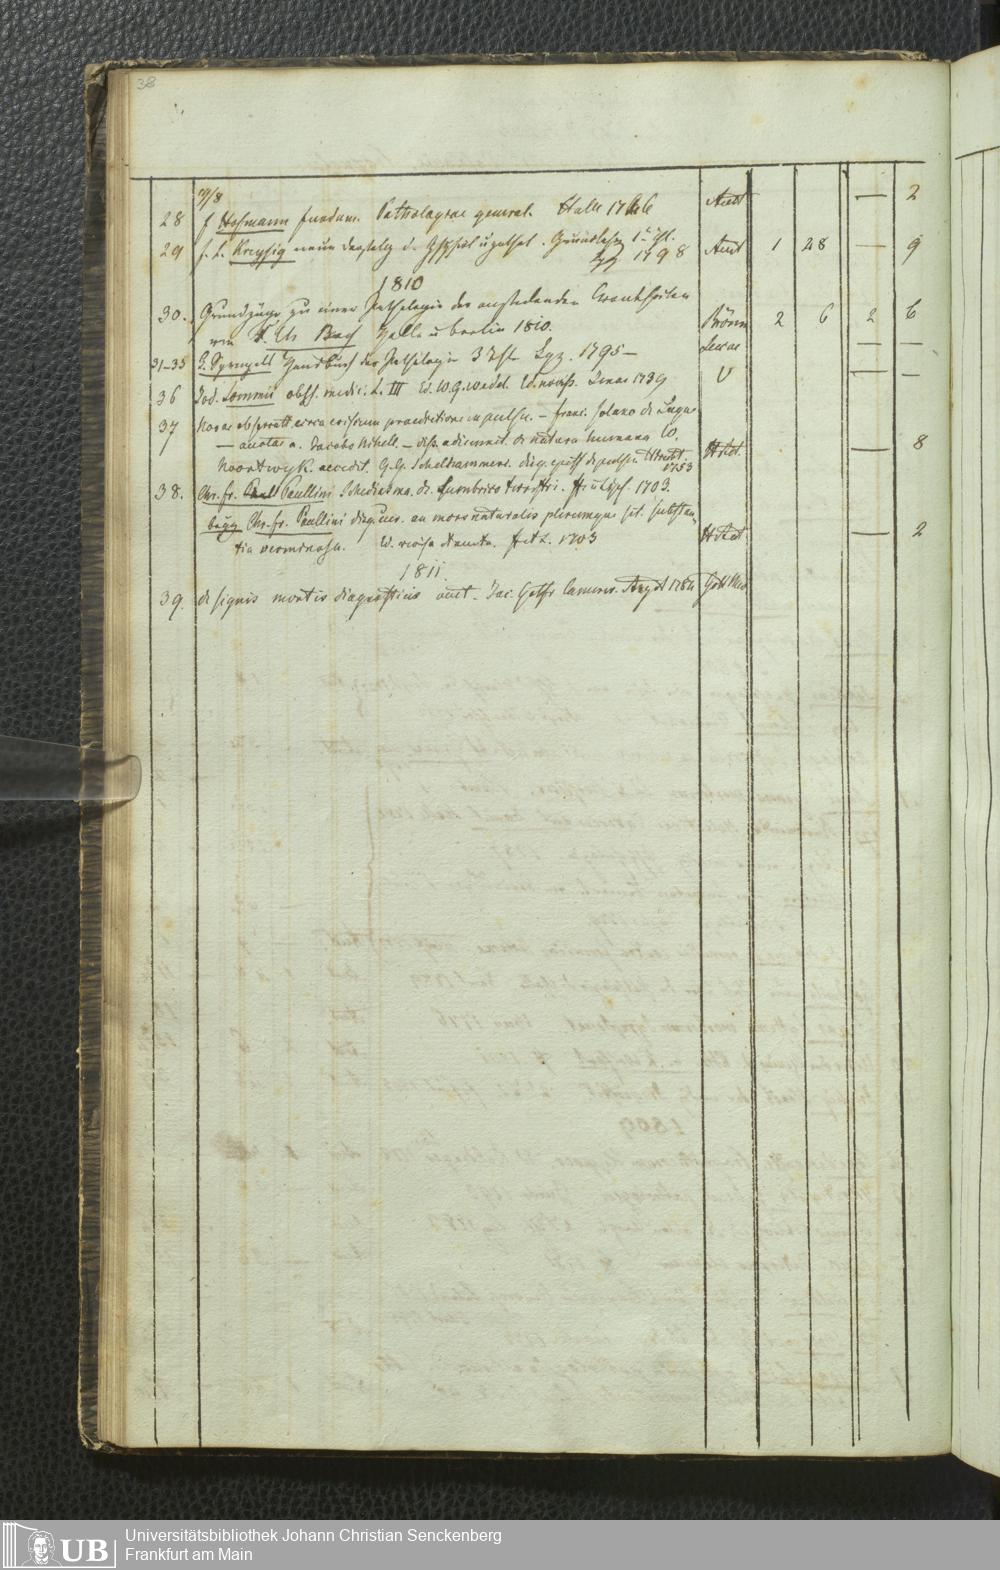 38
28 f Hofmann fundam. Pathologiae general. Halle 1746 Auct — 2
29 f. L. Kreysig neue Darstelg d. Physiol u pathol. Grundlehr 1r Thl.
Lpz 1798 Auct 1 28 — 9
1810
30. Grundzüge zu einer Pathologie der ansteckenden Krankheiten
von Bach Halle u berlin 1810. Brönn 2 6 2 6
31–35 Sprengels Handbuch der Pathologie 3 Thle Lpz. 1795 — — —
36 Jod. Lommii obss. medic. L. III Ed. W. G. Wedel. Ed. noviss. Jenae 1739 — —
37 Novae observatt. circa crisium praedictione ex pulsu. — franc. solano de Luque
— auctae a. Jacobo Nihell. — diss. de natura humana W.
Noortwyk. accedit. G. G. Schelhammeri. de pulsu. 1753 — 8
38. Chr. fr. Paullini Schediasma. de lumbrico terrestri. ff. u Lpz. 1703.
Chr. fr. Paullini disq. cur. an mors naturalis plerumque sit. substan-
tia verminosa. 1703 — 2
1811.
39. de signis mortis diagnosticis auct. Jac. Gotfr Camerer. 1784
UB
Universitätsbibliothek Johann Christian Senckenberg
Frankfurt am Main